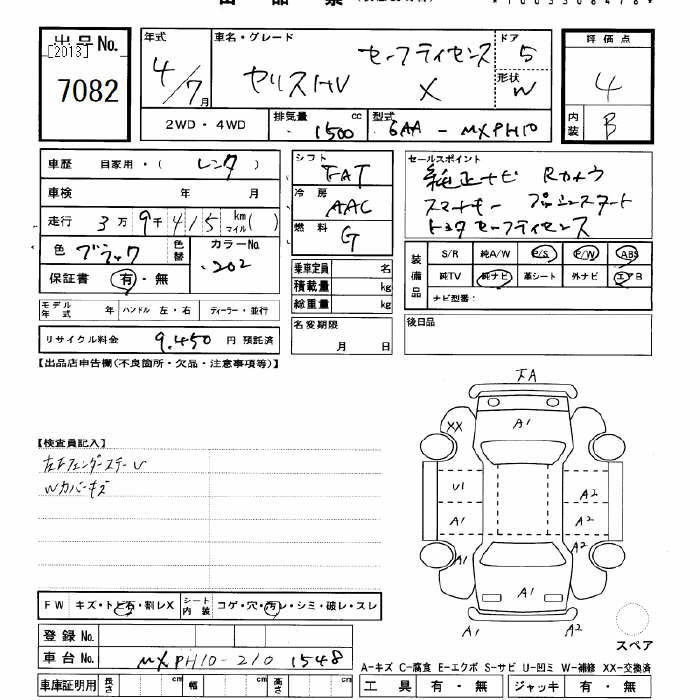 出品No.
[2013]
7082
年式
4/7月
車名・グレード
セーフティセンス
ヤリスHV X
ドア 5
形状 W
評価点
4
内装 B
2WD・4WD
排気量 1500 cc
型式 6AA - MXPH10
車歴 自家用・( レンタ )
車検 年 月
走行 3万9千415 km マイル( )
色 ブラック 色替 カラーNo. 202
保証書 有・無
モデル年式 年 ハンドル 左・右 ディーラー・並行
リサイクル料金 9,450 円 預託済
シフト FAT
冷房 AAC
燃料 G
乗車定員 名
積載量 kg
総重量 kg
名変期限
月 日
セールスポイント
純正ナビ Rカメラ
スマートキー プッシュスタート
トヨタセーフティセンス
装備品
S/R 純A/W P/S P/W ABS
純TV 純ナビ 革シート 外ナビ エアB
ナビ型番:
後日品
【出品店申告欄(不良箇所・欠品・注意事項等)】
FA
XX A1
U1 A2
A1 A2
A1 A2
A1
A1 A2
【検査員記入】
Wカバーキズ
FW キズ・トビ石・割レX シート内装 コゲ・穴・汚レ・シミ・破レ・スレ
登録No.
車台No. MXPH10-2101548
スペア
A-キズ C-腐食 E-エクボ S-サビ U-凹ミ W-補修 XX-交換済
車庫証明用 長さ cm 幅 cm 高さ cm
工具 有・無 ジャッキ 有・無